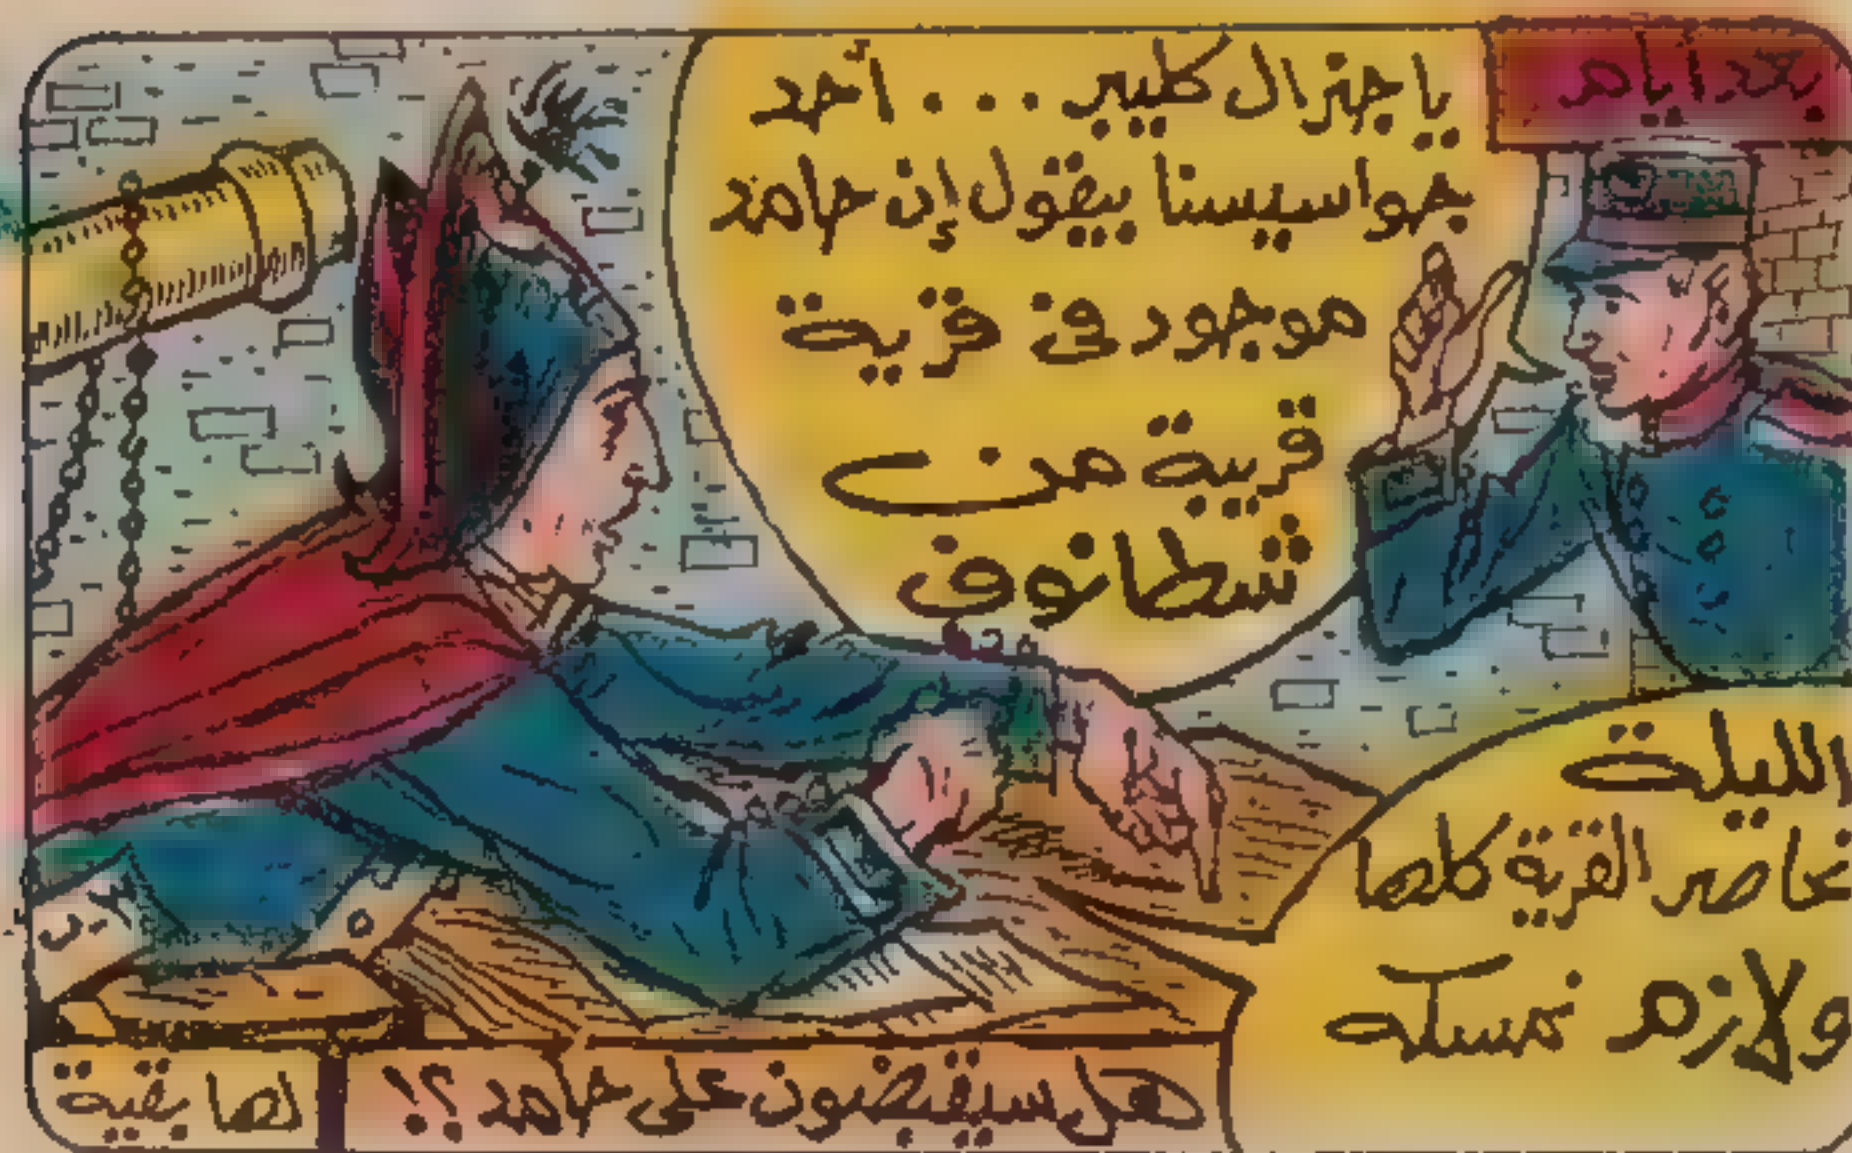 بعد أيام
يا جنرال كليبر ... أحد
جواسيسنا بيقول إن حامد
موجود فى قرية
قريبة من
شطانوف
الليلة
نحاصر القرية كلها
ولازم نمسكه
هل سيقبضون على حامد ؟!
لها بقية